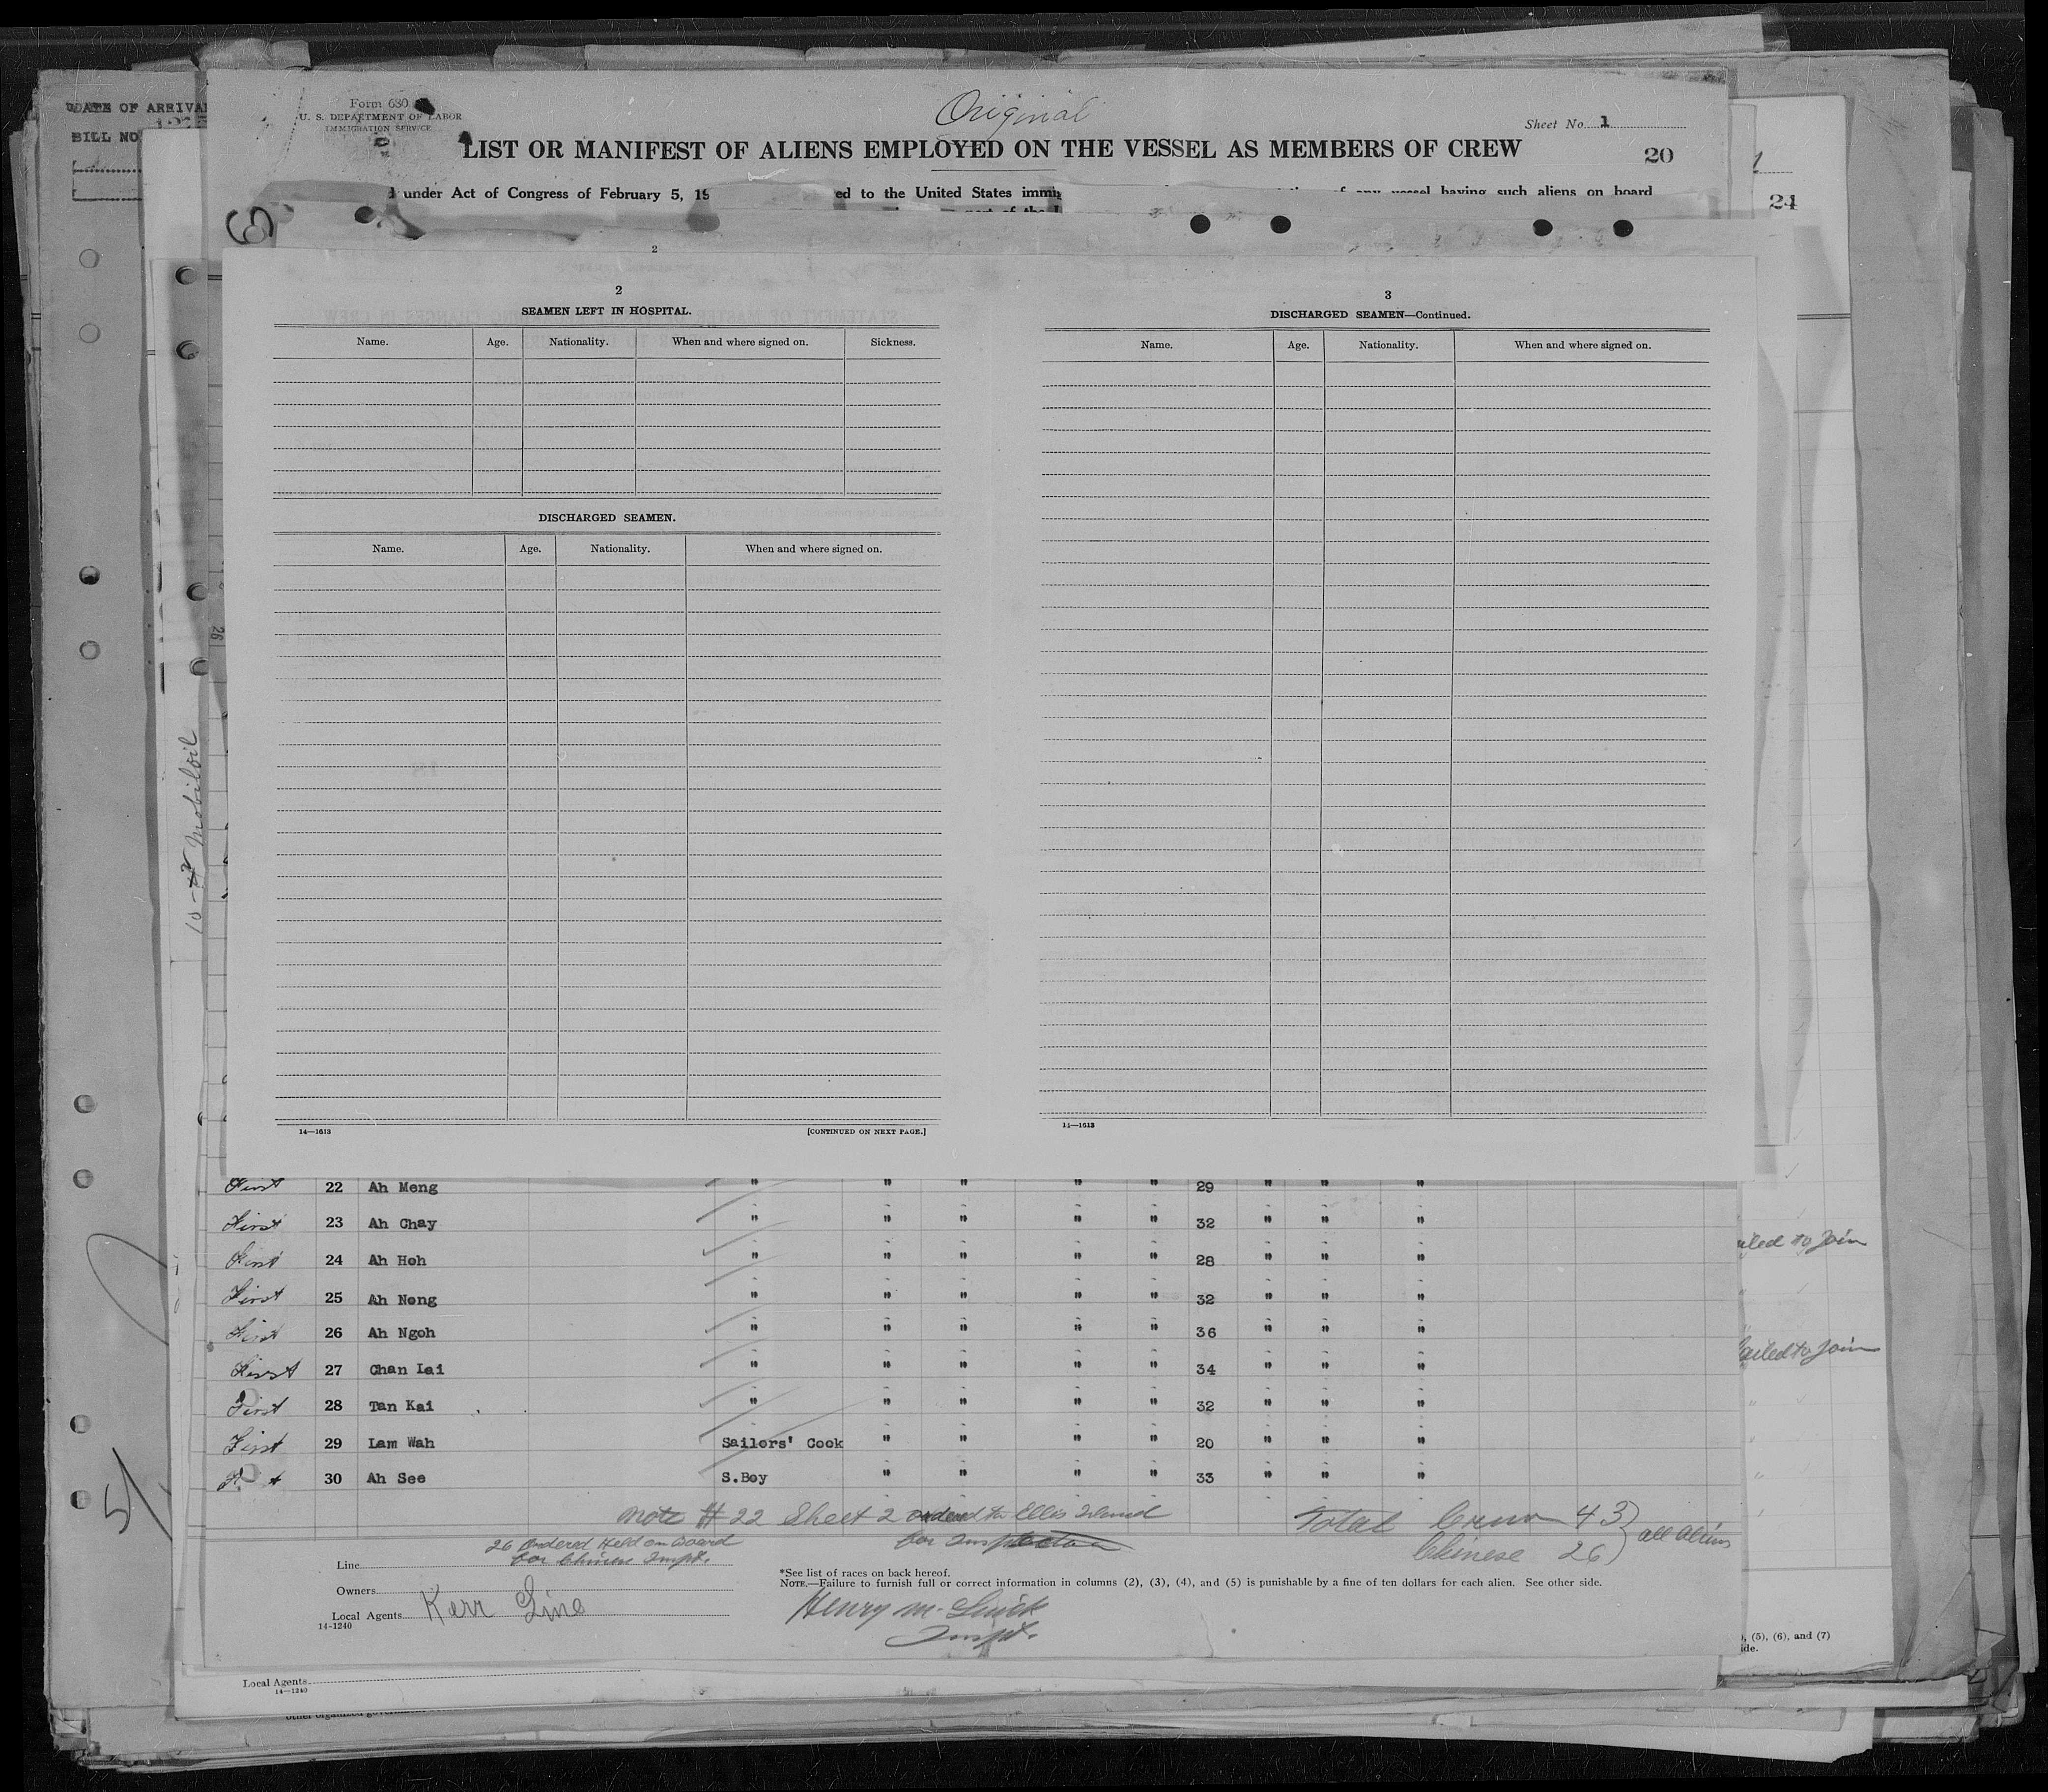 DATE OF ARRIVAL
BILL NO
Form 680
U. S. DEPARTMENT OF LABOR
IMMIGRATION SERVICE
Original
Sheet No. 1
LIST OR MANIFEST OF ALIENS EMPLOYED ON THE VESSEL AS MEMBERS OF CREW
20
under Act of Congress of February 5, 19
ed to the United States immig
of any vessel having such aliens on board
24
2
2
SEAMEN LEFT IN HOSPITAL.
Name. Age. Nationality. When and where signed on. Sickness.
DISCHARGED SEAMEN.
Name. Age. Nationality. When and where signed on.
14—1613
[CONTINUED ON NEXT PAGE.]
3
DISCHARGED SEAMEN—Continued.
Name. Age. Nationality. When and where signed on.
14—1613
26
Mobiloil
First 22 Ah Meng " " " " " 29 " " "
First 23 Ah Chay " " " " " 32 " " "
First 24 Ah Hoh " " " " " 28 " " "
First 25 Ah Nong " " " " " 32 " " "
First 26 Ah Ngoh " " " " " 36 " " "
First 27 Chan Lai " " " " " 34 " " "
First 28 Tan Kai " " " " " 32 " " "
First 29 Lam Wah Sailors' Cook " " " " 20 " " "
30 Ah See S.Boy " " " " 33 " " "
to Join
Failed to Join
Note # 22 Sheet 2 ordered to Ellis Island
for Inspection
Total Crew 43
Chinese 26
all aliens
26 Ordered Held on board
for Chinese Inspt.
Line
Owners
Local Agents Kerr Line
14-1240
*See list of races on back hereof.
NOTE.—Failure to furnish full or correct information in columns (2), (3), (4), and (5) is punishable by a fine of ten dollars for each alien. See other side.
Henry M.
Inspt.
, (5), (6), and (7)
ide.
Local Agents
14—1240
5/